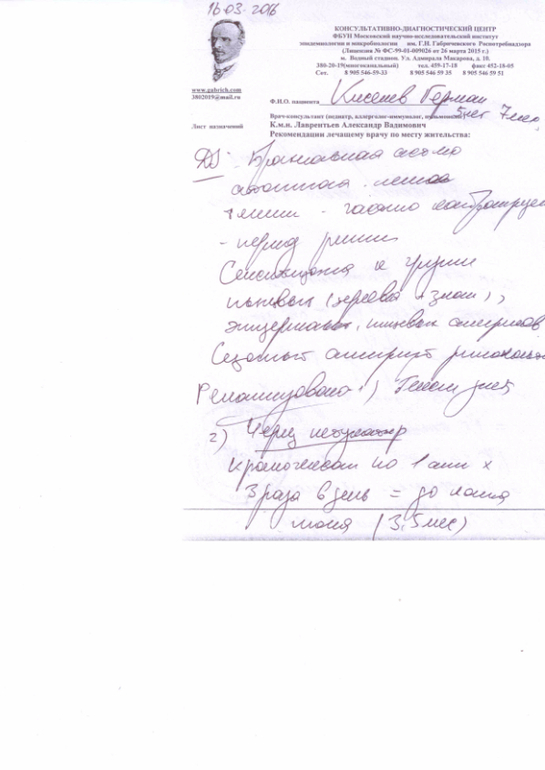 16.03.2016
КОНСУЛЬТАТИВНО-ДИАГНОСТИЧЕСКИЙ ЦЕНТР
ФБУН Московский научно-исследовательский институт
эпидемиологии и микробиологии им. Г.Н. Габричевского Роспотребнадзора
(Лицензия № ФС-99-01-009026 от 26 марта 2015 г.)
м. Водный стадион. Ул. Адмирала Макарова, д. 10.
380-20-19(многоканальный) тел. 459-17-18 факс 452-18-05
Сот. 8 905 546-59-33 8 905 546 59 35 8 905 546 59 51
www.gabrich.com
3802019@mail.ru
Ф.И.О. пациента Киселев Герман
Врач-консультант (педиатр, аллерголог-иммунолог, 5 лет 7 мес
Лист назначений
К.м.н. Лаврентьев Александр Вадимович
Рекомендации лечащему врачу по месту жительства:
DS: Бронхиальная астма
атопическая
течения - частично
- период
Сенсибилизация к группе
пыльцевых (деревья + злаки),
эпидермальн, пищевых аллергенов
Сезонный аллергич
Рекомендовано: 1)
2) Через небулайзер
Кромогексал по 1 амп х
3 раза в день = до конца
июня (3,5 мес)